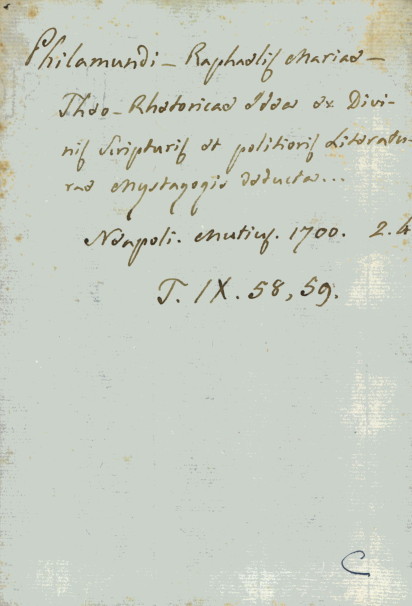 Philamundi - Raphaelis Mariae -
Theo-Rhetoricae Idea ex Divi-
nis Scripturis et politioris Literatu-
rae Mystagogis deducta...
Neapoli. Mutius. 1700. 2.4
T. IX. 58, 59.
C